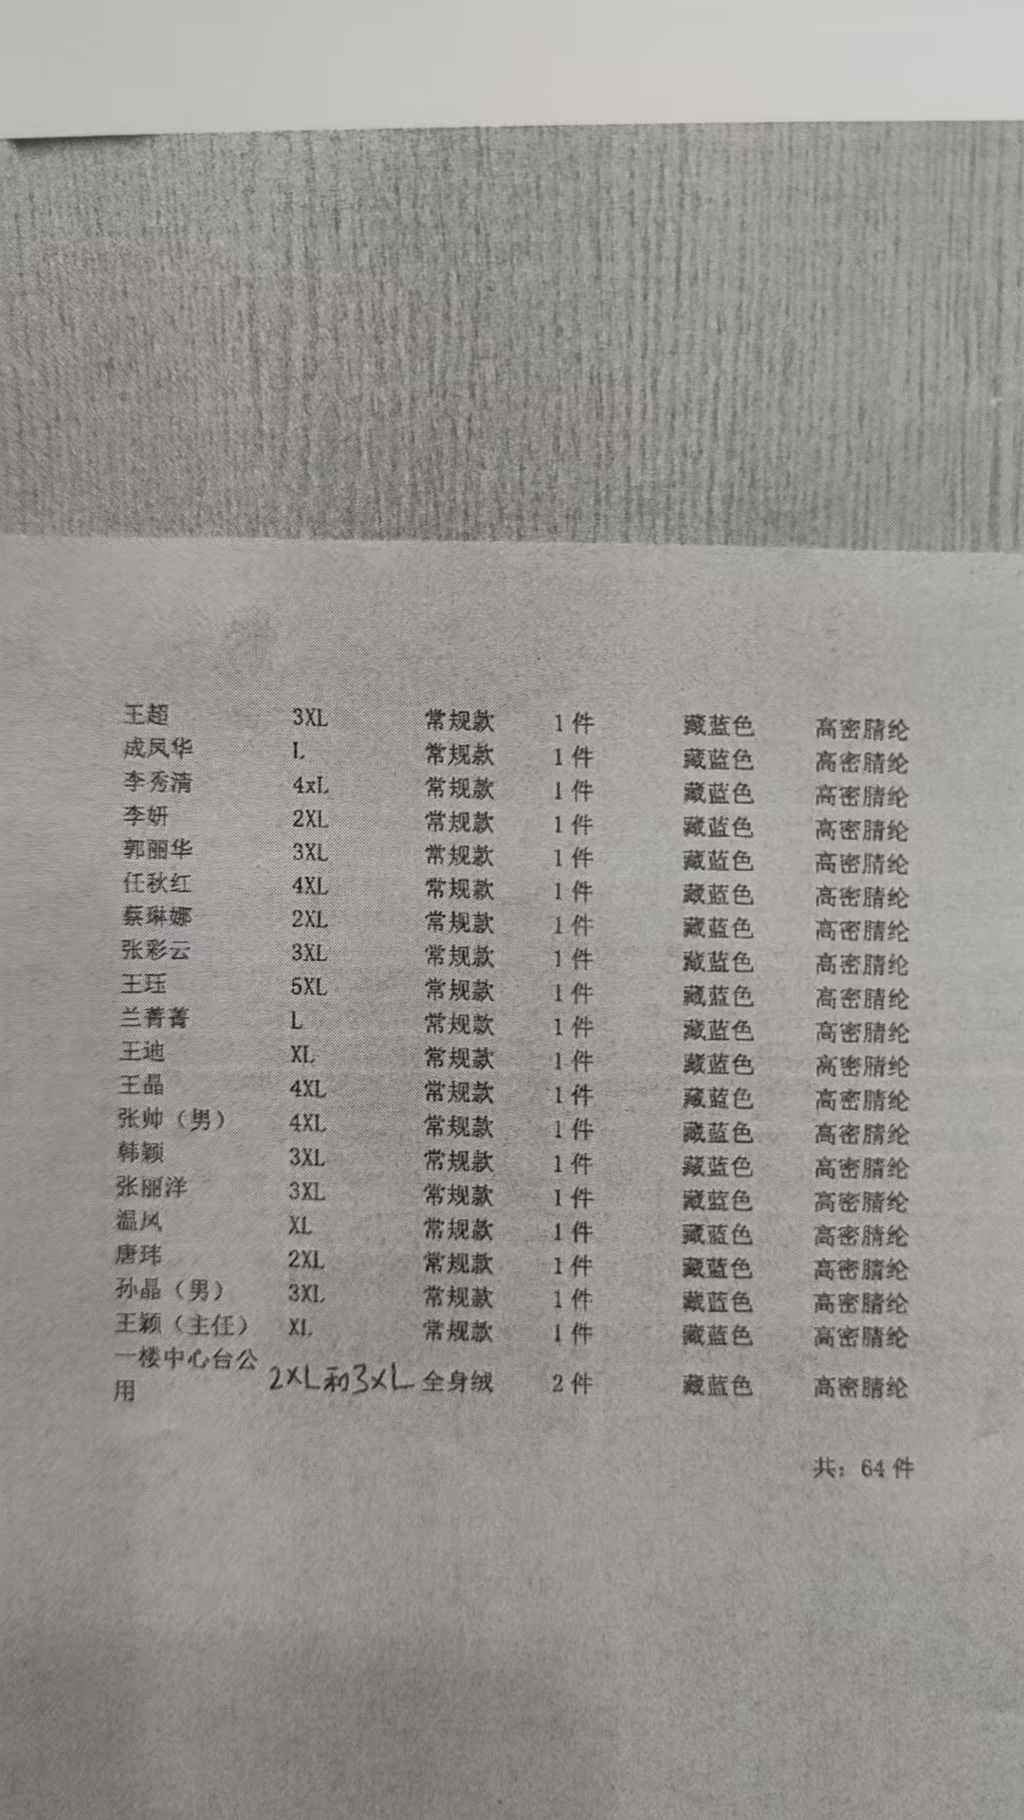 王超 3XL 常规款 1件 藏蓝色 高密腈纶
成凤华 L 常规款 1件 藏蓝色 高密腈纶
李秀清 4xL 常规款 1件 藏蓝色 高密腈纶
李妍 2XL 常规款 1件 藏蓝色 高密腈纶
郭丽华 3XL 常规款 1件 藏蓝色 高密腈纶
任秋红 4XL 常规款 1件 藏蓝色 高密腈纶
蔡琳娜 2XL 常规款 1件 藏蓝色 高密腈纶
张彩云 3XL 常规款 1件 藏蓝色 高密腈纶
王珏 5XL 常规款 1件 藏蓝色 高密腈纶
兰菁菁 L 常规款 1件 藏蓝色 高密腈纶
王迪 XL 常规款 1件 藏蓝色 高密腈纶
王晶 4XL 常规款 1件 藏蓝色 高密腈纶
张帅（男） 4XL 常规款 1件 藏蓝色 高密腈纶
韩颖 3XL 常规款 1件 藏蓝色 高密腈纶
张丽洋 3XL 常规款 1件 藏蓝色 高密腈纶
温凤 XL 常规款 1件 藏蓝色 高密腈纶
唐玮 2XL 常规款 1件 藏蓝色 高密腈纶
孙晶（男） 3XL 常规款 1件 藏蓝色 高密腈纶
王颖（主任） XL 常规款 1件 藏蓝色 高密腈纶
一楼中心台公
用 2XL和3XL 全身绒 2件 藏蓝色 高密腈纶
共：64件